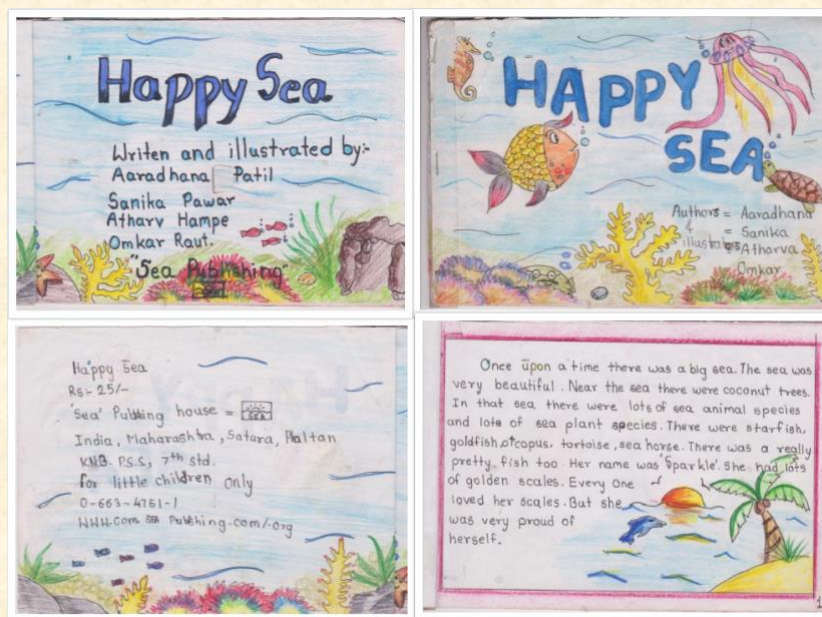 Happy Sea
Writen and illustrated by:-
Aaradhana Patil
Sanika Pawar
Atharv Hampe
Omkar Raut.
"Sea Publishing"
HAPPY
SEA
Authors = Aaradhana
& = Sanika
illustrators Atharva
Omkar
Happy Sea
Rs:- 25/-
'Sea' Publing house = SEA
India, Maharashtra, Satara, Phaltan
KNB. P.S.S, 7th std.
for little children only
0-663-4751-1
WWW.Com Sea Publishing.com/.org
Once upon a time there was a big sea. The sea was
very beautiful. Near the sea there were coconut trees.
In that sea there were lots of sea animal species
and lots of sea plant species. There were starfish,
goldfish, otcopus, tortoise, sea horse. There was a really
pretty fish too. Her name was 'Sparkle'. She had lots
of golden scales. Every one
loved her scales. But she
was very proud of
herself.
1